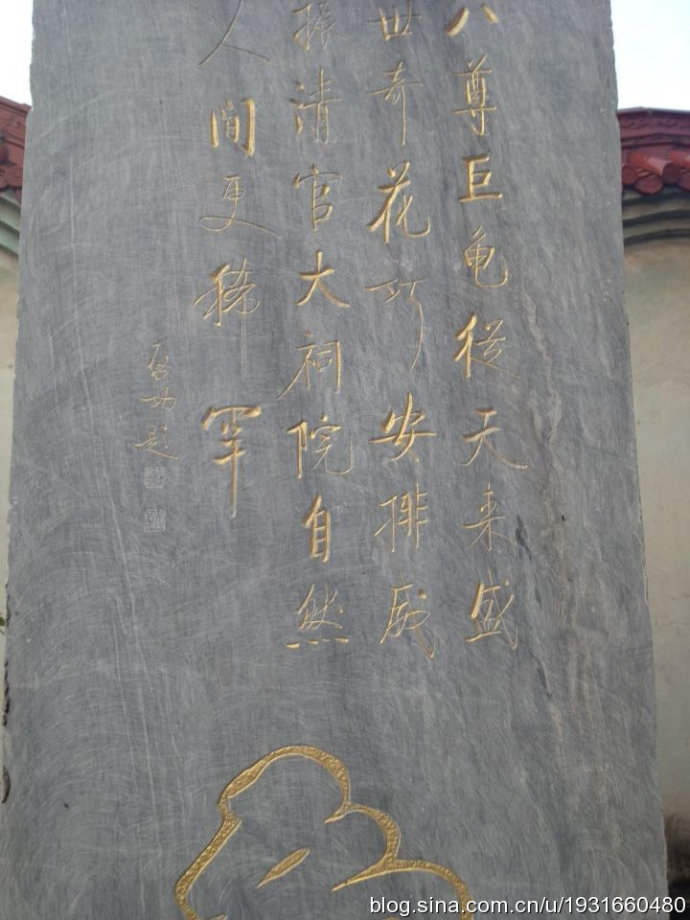 八尊巨龟從天来盛
世奇花巧安排威
振清官大祠院自然
人间更稀罕
启功题
blog.sina.com.cn/u/1931660480